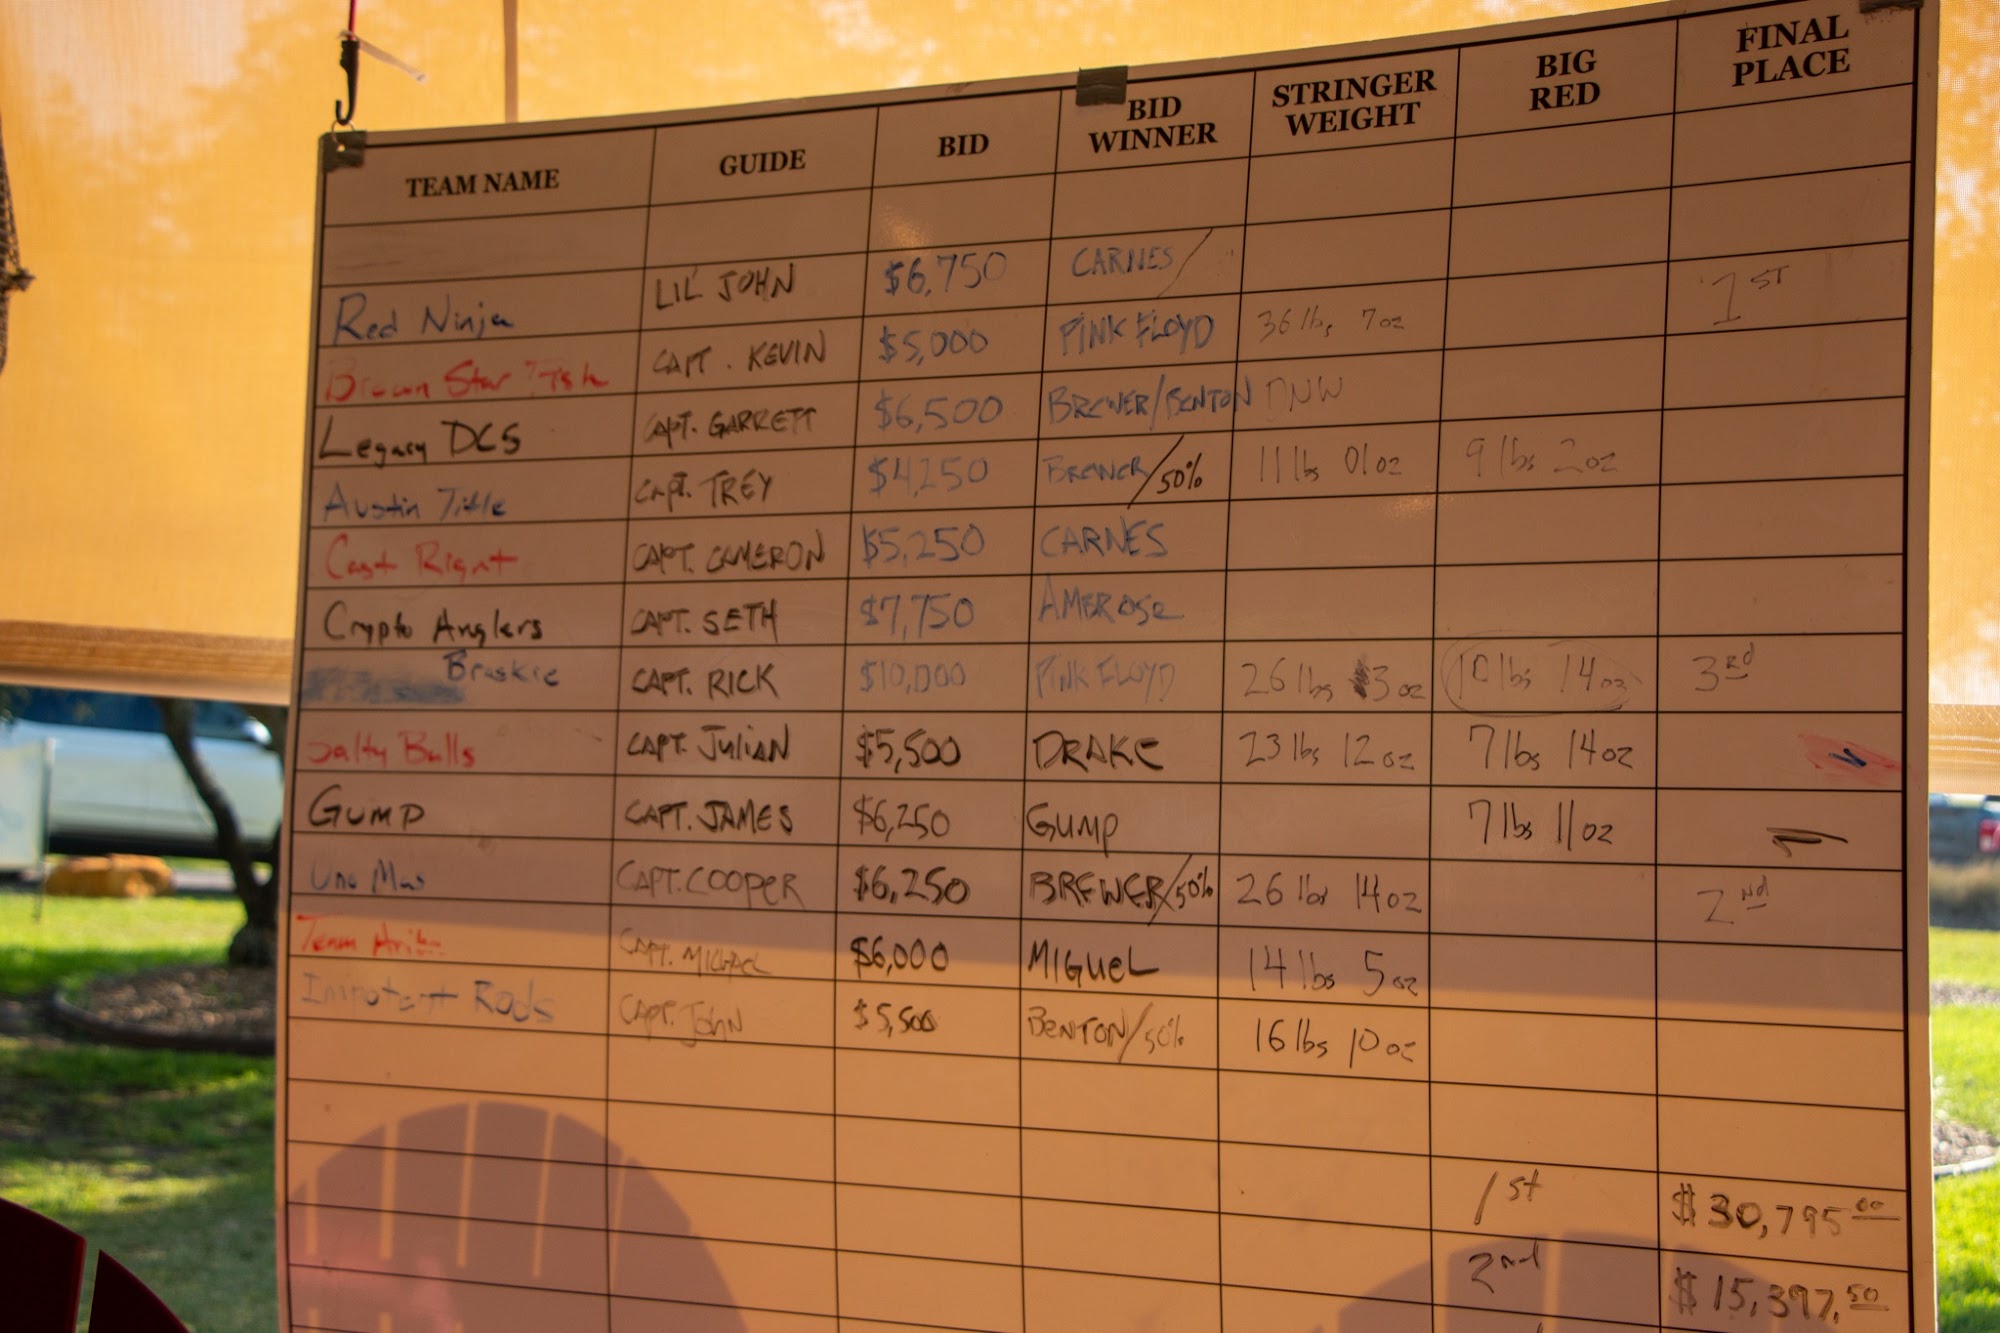 TEAM NAME GUIDE BID BID WINNER STRINGER WEIGHT BIG RED FINAL PLACE
Red Ninja LIL' JOHN $6,750 CARNES/
Brown Star CAPT. KEVIN $5,000 PINK FLOYD 36 lbs 7oz 1ST
Legacy DCS CAPT. GARRETT $6,500 BREWER/BENTON DNW
Austin Title CAPT. TREY $4,250 BREWER/50% 11 lbs 01oz 9 lbs 2oz
Cast Right CAPT. CAMERON $5,250 CARNES
Crypto Anglers CAPT. SETH $7,750 AMBROSE
Braskie CAPT. RICK $10,000 PINK FLOYD 26 lbs 3 oz 10 lbs 14oz 3rd
Salty Bulls CAPT. JULIAN $5,500 DRAKE 23 lbs 12 oz 7 lbs 14oz
GUMP CAPT. JAMES $6,250 GUMP 7 lbs 11oz
Uno Mas CAPT. COOPER $6,250 BREWER/50% 26 lbs 14oz 2ND
Team CAPT. MICHAEL $6,000 MIGUEL 14 lbs 5 oz
Impotent Rods CAPT. John $5,500 BENTON/50% 16 lbs 10 oz
1st $30,795.00
2nd $15,397.50